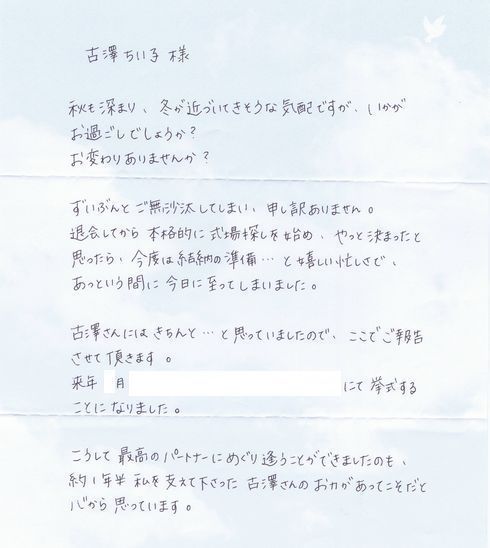 古澤ちい子 様
秋も深まり、冬が近づいてきそうな気配ですが、いかが
お過ごしでしょうか?
お変わりありませんか?
ずいぶんと ご無沙汰してしまい、申し訳ありません。
退会してから 本格的に 式場探しを始め、やっと決まったと
思ったら、今度は結納の準備…と嬉しい忙しさで、
あっという間に 今日に至ってしまいました。
古澤さんには きちんと…と思っていましたので、ここでご報告
させて頂きます。
来年 月 にて 挙式する
ことに なりました。
こうして 最高のパートナーにめぐり逢うことができましたのも、
約1年半 私を支えて下さった 古澤さんのお力があってこそだと
心から 思っています。